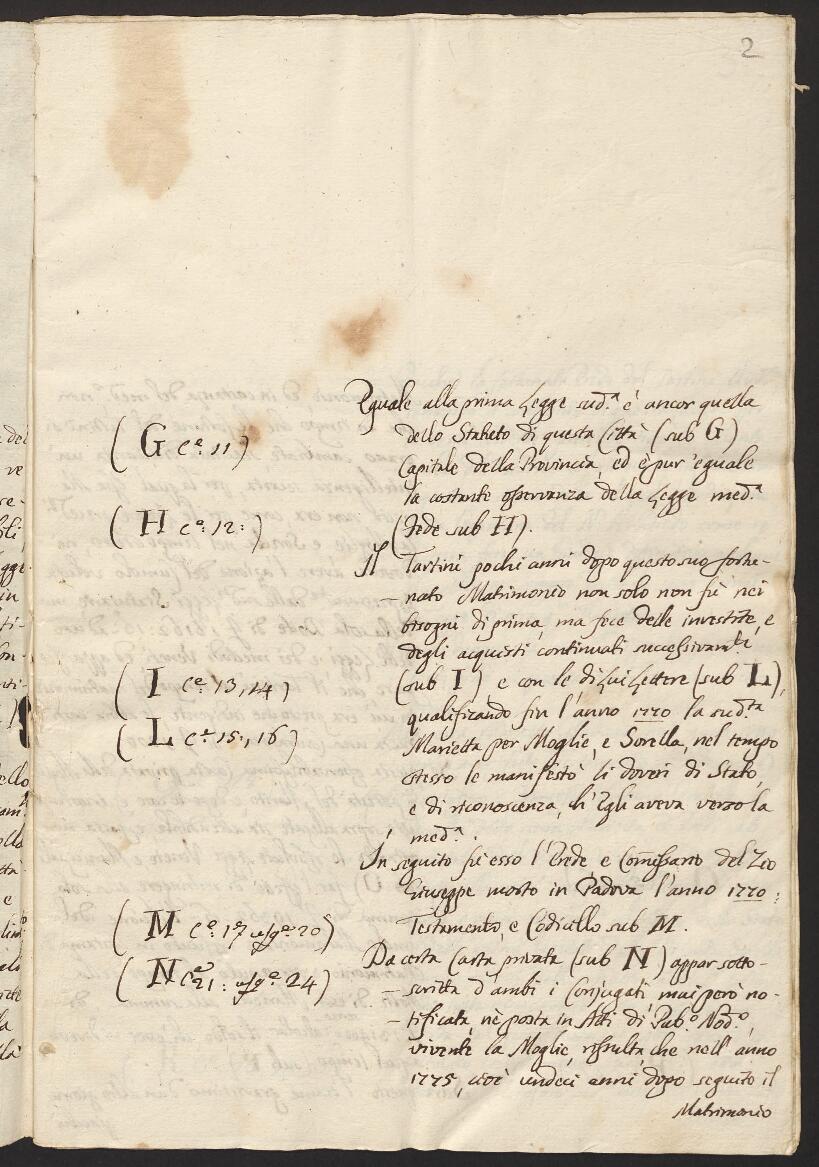 2
Eguale alla prima Legge sud.ª è ancor quella
(G c.e 11)
dello Statuto di questa Città (sub G)
Capitale della Provincia, ed è pur' eguale
la costante osservanza della Legge med.ª
(H c.e 12:)
(Fede sub H).
Il Tartini pochi anni dopo questo suo fortu-
nato Matrimonio non solo non fù nei
bisogni di prima, ma fece delle investite, e
degli acquisti continuati successivam.te
(I c.e 13, 14)
(sub I) e con le di Lui Lettere (sub L),
qualificando fin l'anno 1770 la sud.ta
(L c.e 15:, 16)
Marietta per Moglie, e Sorella, nel tempo
stesso le manifestò li doveri di Stato,
e di riconoscenza, ch'Egli aveva verso la
med.ª.
In seguito fù esso l'Erede e Comissario del Zio
Giuseppe morto in Padova l'anno 1770:
(M c.e 17 usq.e 20)
Testamento, e Codicillo sub M.
Da certa Carta privata (sub N) appar sotto-
(N c.e 21: usq.e 24)
scritta d'ambi i Conjugati, mai però no-
tificata, nè posta in Atti di Pub.º Nod.º,
vivente la Moglie, risulta, che nell'anno
1775, cioè undeci anni dopo seguito il
Matrimonio